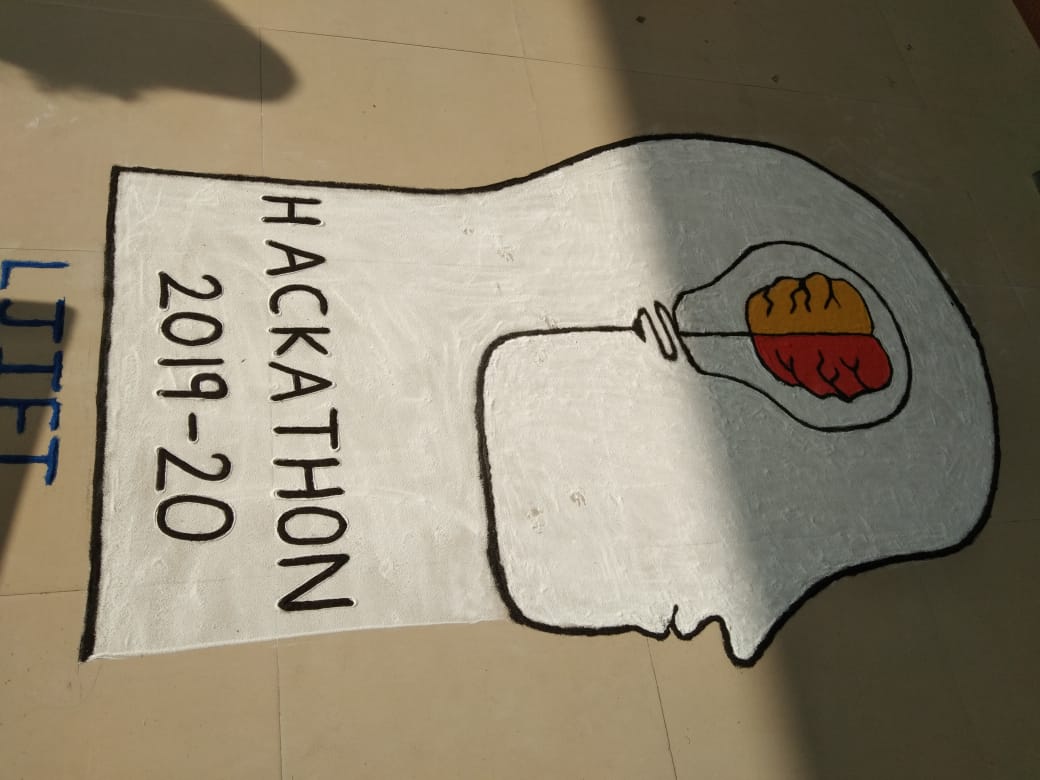 HACKATHON
2019-20
LJIET